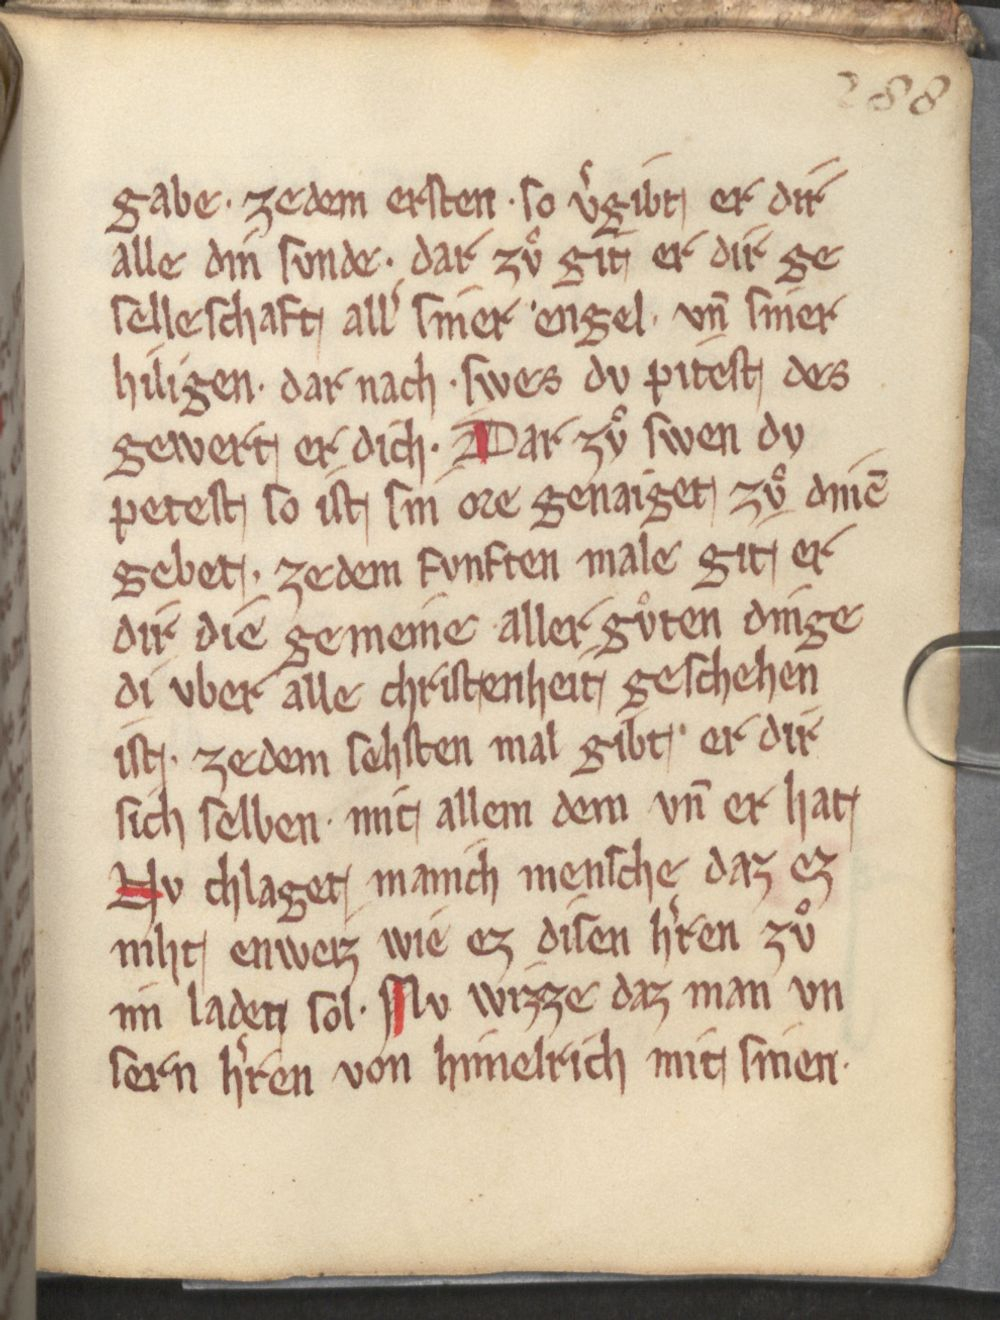 288
gabe · zedem ersten · so v͛gibt er dir
alle din sunde · dar zvͦ git er dir ge
selleschaft all͛ siner engel · vn̄ siner
hiligen · dar nach · swes dv pitest des
gewert er dich · Dar zvͦ swen dv
petest so ist sin ore genaiget zvͦ dinē
gebet · zedem fvnften male git er
dir die gemeine aller gvͦten dinge
di vber alle christenheit geschehen
ist · zedem sehsten mal gibt er dir
sich selben · mit allem dem vn̄ er hat
Nv chlaget manich mensche daz ez
niht enweiz wie ez disen h͛ren zvͦ
im laden sol · Nv wizze daz man vn
sern h͛ren von himelrich mit sinen ·